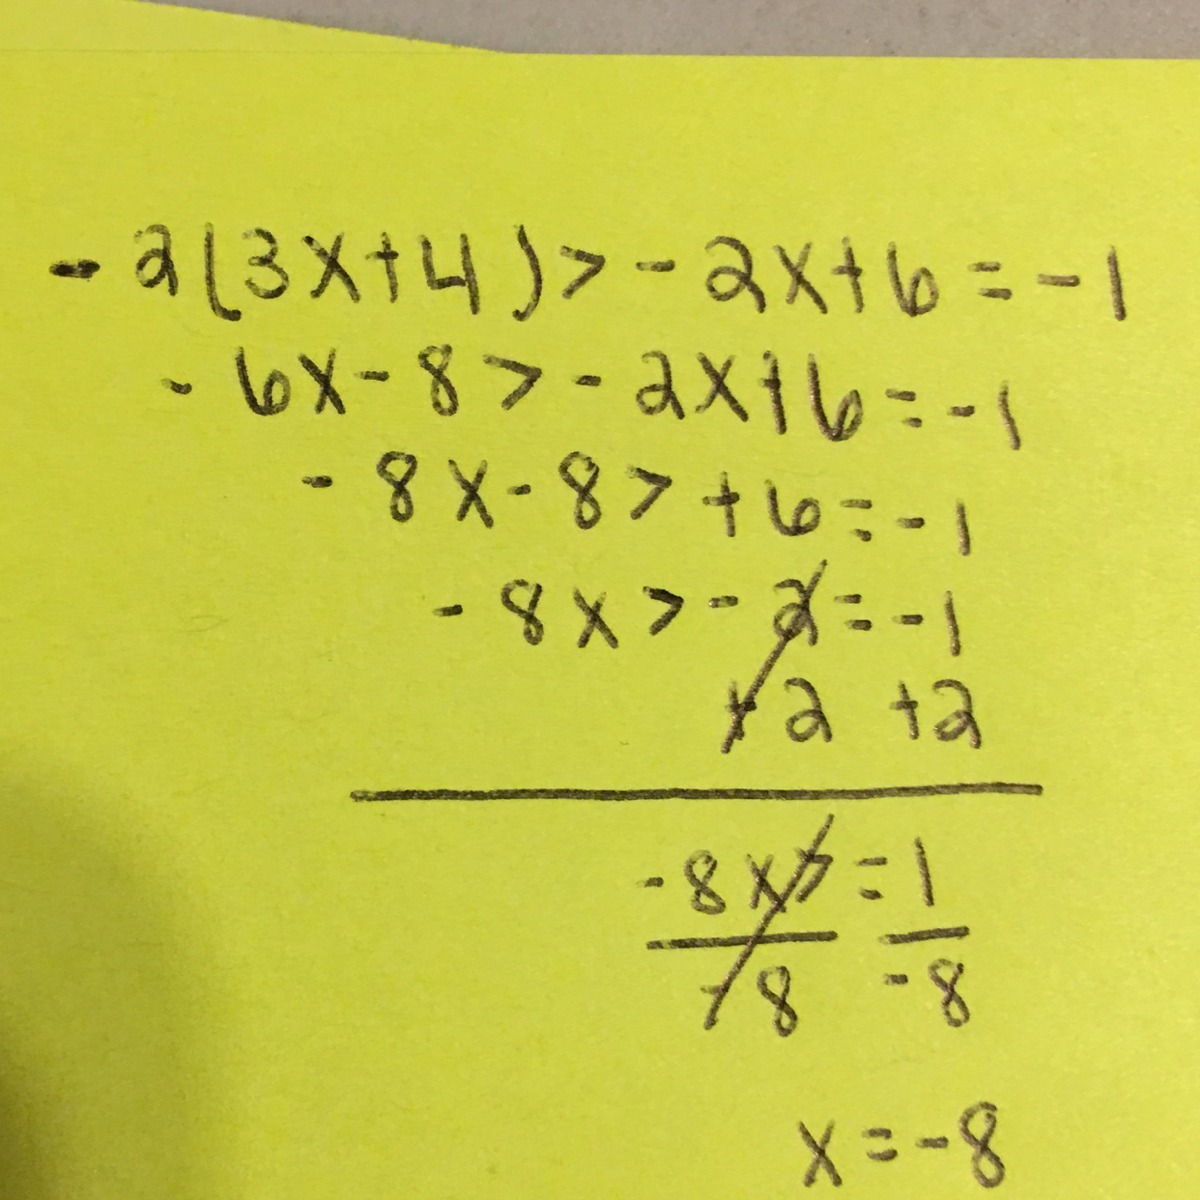 -2(3x+4)>-2x+6=-1
-6x-8>-2x+6=-1
-8x-8>+6=-1
-8x>-2=-1
+2 +2
-8x>=1
-8 -8
x=-8